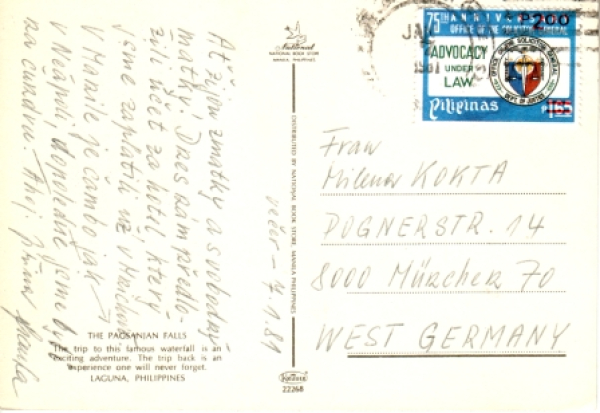 National
NATIONAL BOOK STORE
MANILA, PHILIPPINES
Ať žijou zmatky a svobodný
matky! Dnes nám předlo-
žili účet za hotel, který
jsme zaplatili už v Mnichově.
V Manile je čambo jak
v Neapoli, dopoledne jsme byli
na čundru. Ahoj
THE PAGSANJAN FALLS
The trip to this famous waterfall is an
exciting adventure. The trip back is an
experience one will never forget.
LAGUNA, PHILIPPINES
večer - 4.1.81
DISTRIBUTED BY NATIONAL BOOK STORE, MANILA PHILIPPINES
22268
JAN
1981
75TH ANNIV
P2.00
OFFICE OF THE SOLICITOR GENERAL
ADVOCACY
UNDER
LAW
OFFICE OF THE SOLICITOR GENERAL
DEPT. OF JUSTICE
Pilipinas
Frau
Milena KOKTA
POGNERSTR. 14
8000 München 70
WEST GERMANY